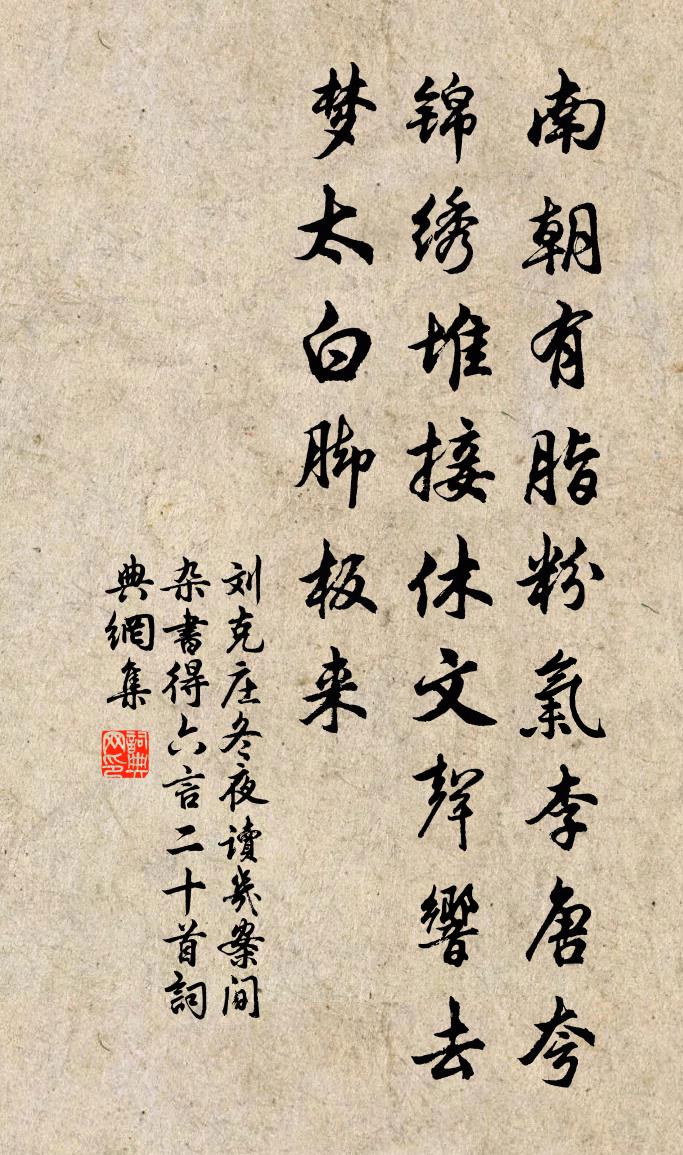 南朝有脂粉氣李唐夸
锦绣堆接休文聲響去
梦太白脚板来
刘克庄冬夜讀几案间
杂書得六言二十首詞
典網集
詞典网印